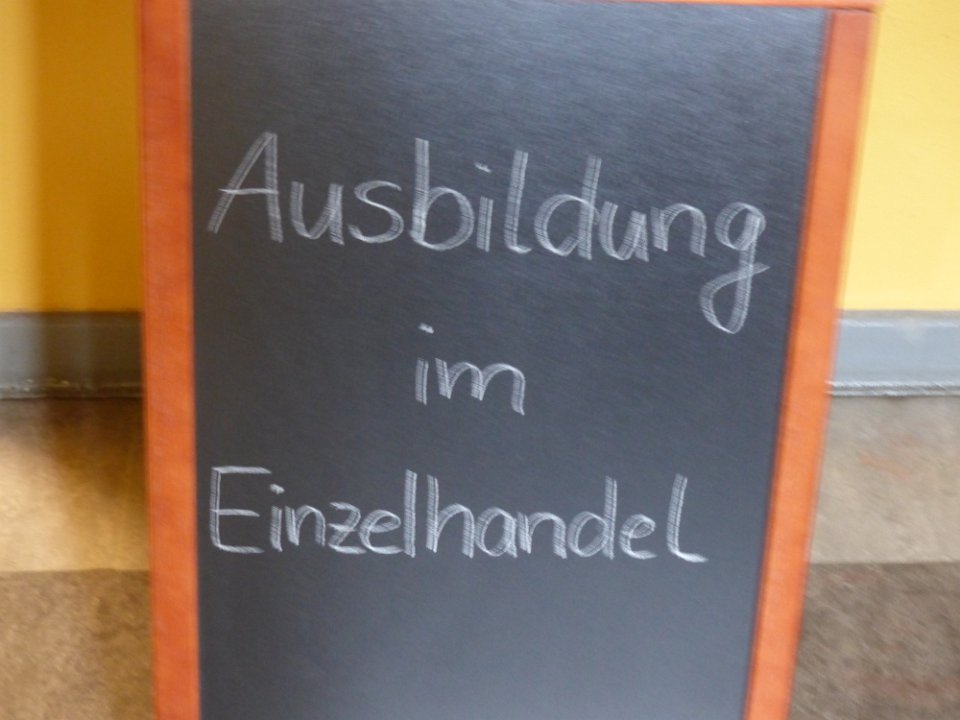 Ausbildung
im
Einzelhandel